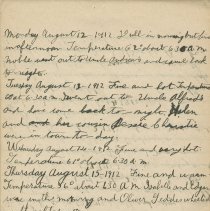 Monday August 12 1912 Dull in morning but fine
in afternoon Temperature 62° about 6.30 A.M.
Mable went out to Uncle and came back
to-night.
Tuesday August 13 1912 Fine and hot Temperature
at 6.30 a.m. went out to Uncle Alfred's
and has come back to-night. Helen
and her cousin Bessie Christie
were in town to-day.
Wednesday August 14 1912 Fine and very hot.
Temperature 61° about 6.30 a.m.
Thursday August 15 1912 Fine and warm
Temperature 56° about 6.30 A.M. Isabell and Edgar
was with mowing and Oliver Teddie wheeled